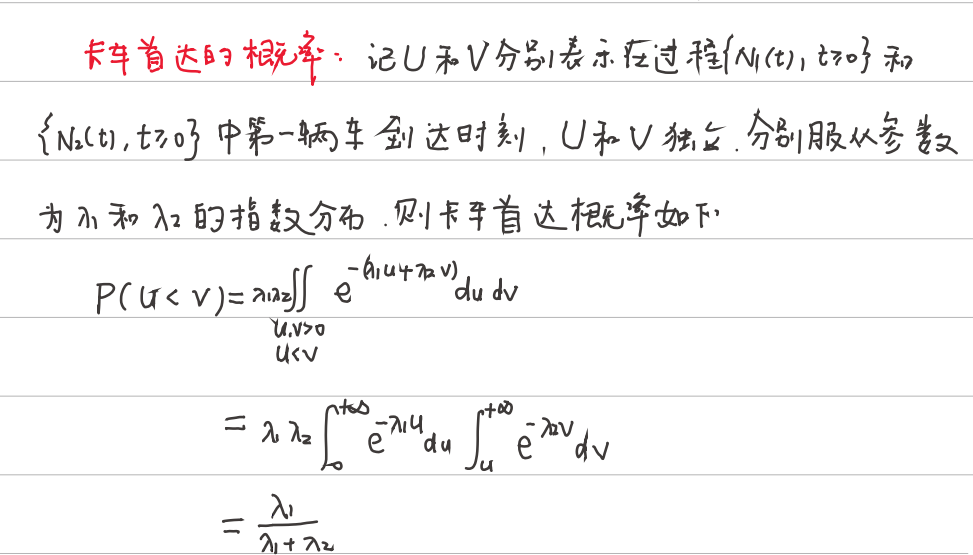 卡车首达的概率：记U和V分别表示在过程{N₁(t), t≥0}和
{N₂(t), t≥0}中第一辆车到达时刻，U和V独立.分别服从参数
为λ₁和λ₂的指数分布.则卡车首达概率如下:
P(U<V)=λ₁λ₂∬_{u,v>0, u<v} e^{-(λ₁u+λ₂v)} du dv
=λ₁λ₂∫_0^{+∞} e^{-λ₁u} du ∫_u^{+∞} e^{-λ₂v} dv
=λ₁/(λ₁+λ₂)